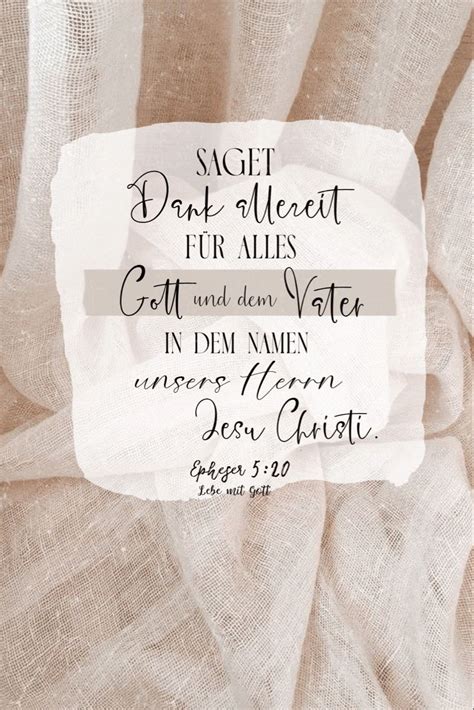 SAGET
Dank allezeit
FÜR ALLES
Gott und dem Vater
IN DEM NAMEN
unsers Herrn
Jesu Christi.
Epheser 5:20
Lebe mit Gott